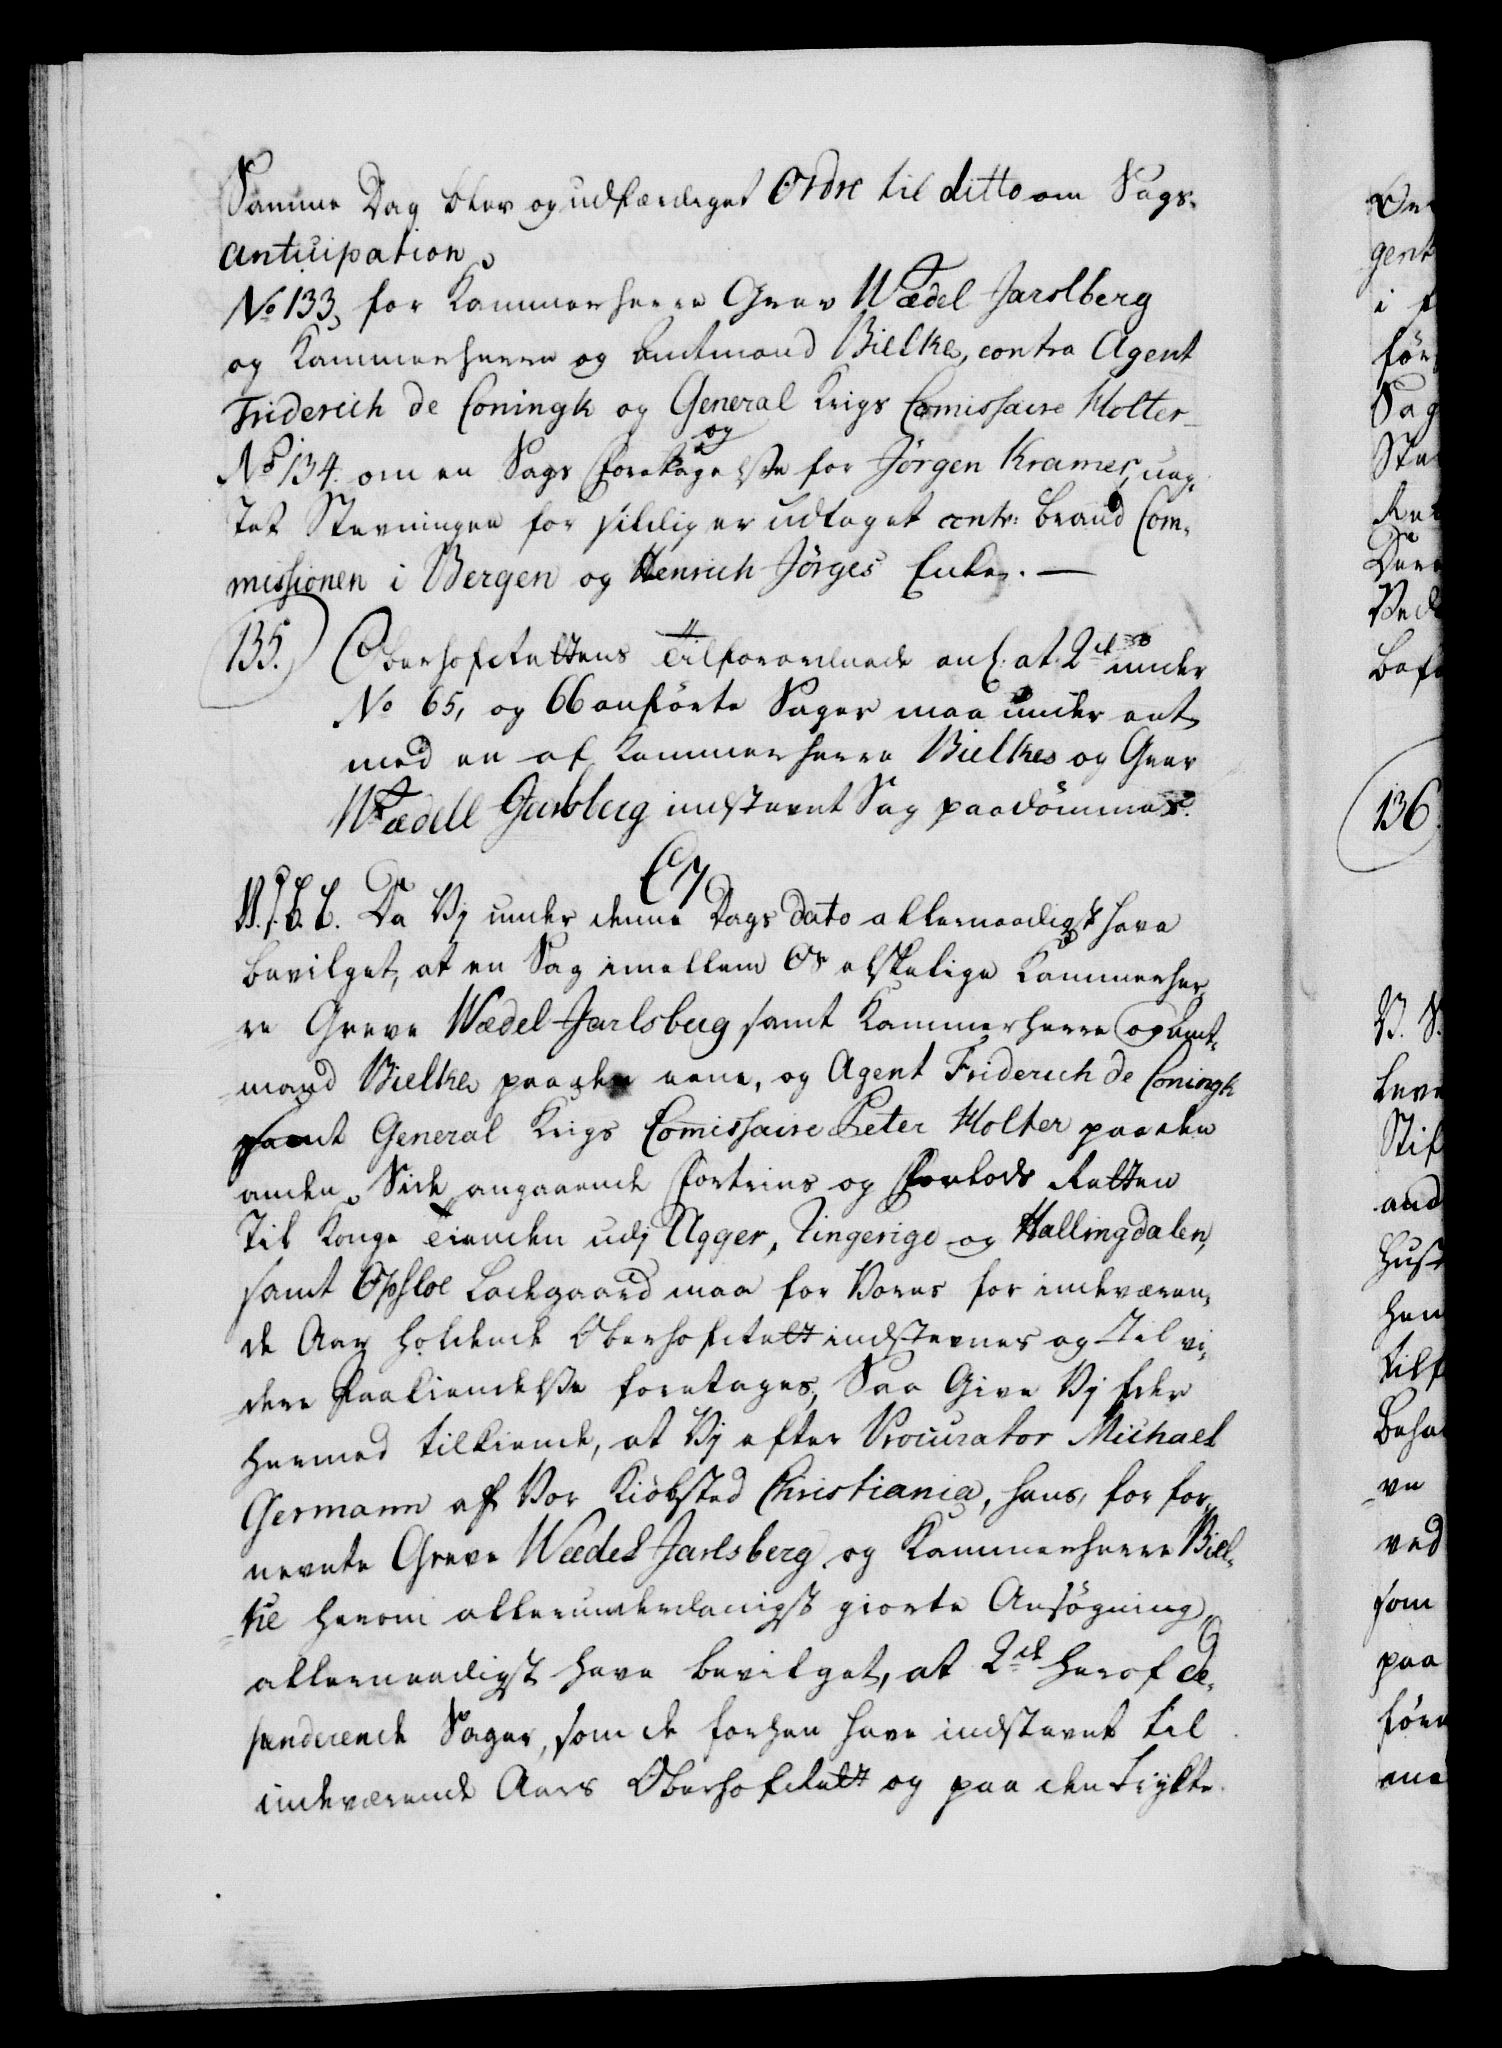 Samme Dag blev og udfærdiget Ordre til ditto om Sags-
Anticipation
No 133, for Kammerherre Grev Wædel Jarslberg
og Kammerherre og Amtmand Bielke, contra Agent
Friderich de Coningk og General Krigs Comissaire Holter
No 134. om en Sags Foretagelse for Jörgen Kramer, uag-
og
tet Stevningen for sildig er udtaget contr: Brand Com-
missionen i Bergen og Henrich Jörges Enke. —
135. Oberhofretttens Tilforordnede anl. at 2de under
No 65, og 66 anførte Sager maa under eet
med en af Kammerherre Bielkes og Grev
Wædell Jarlsberg indstevnt Sag paadömmes.
C7
V. S. G. T. Da Vj under denne Dags Dato allernaadigst have
bevilget, at en Sag imellem Os elskelige Kammerher-
re Greve Wædel-Jarlsberg samt Kammerherre og Amt-
mand Bielke paa den eene, og Agent Friderich de Coningk
samt General Krigs Comissaire Peter Holter paa den
anden Side, angaaende Fortrins og Forlods Retten
til Konge Tienden udj Agger, Ringerige og Hallingdalen,
samt Opsloe Ladegaard maa for Vores for indeværen-
de Aar holdende Oberhofrett indstevnes og til vi-
dere Paakiendelse foretages; Saa Give Vj Eder
hermed tilkiende, at Vj efter Procurator Michael
Germann af Vor Kiöbsted Christiania, hans, for for-
nevnte Greve Wædel Jarlsberg og Kammerherre Biel-
ke herom allerunderdanigst giorte Ansögning,
allernaadigst have bevilget, at 2de heraf de-
penderende Sager, som de forhen have indstevnt til
indeværende Aars Oberhofrett og paa den trykte